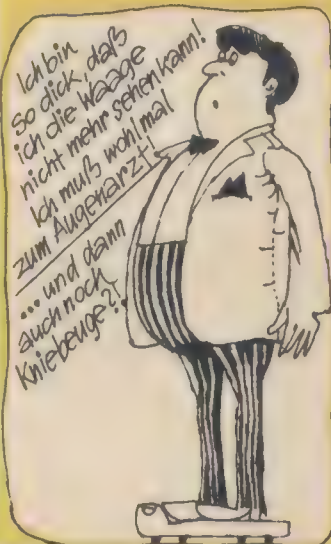 Ich bin
so dick, daß
ich die Waage
nicht mehr sehen kann!
Ich muß wohl mal
zum Augenarzt!
... und dann
auch noch
Kniebeuge?!